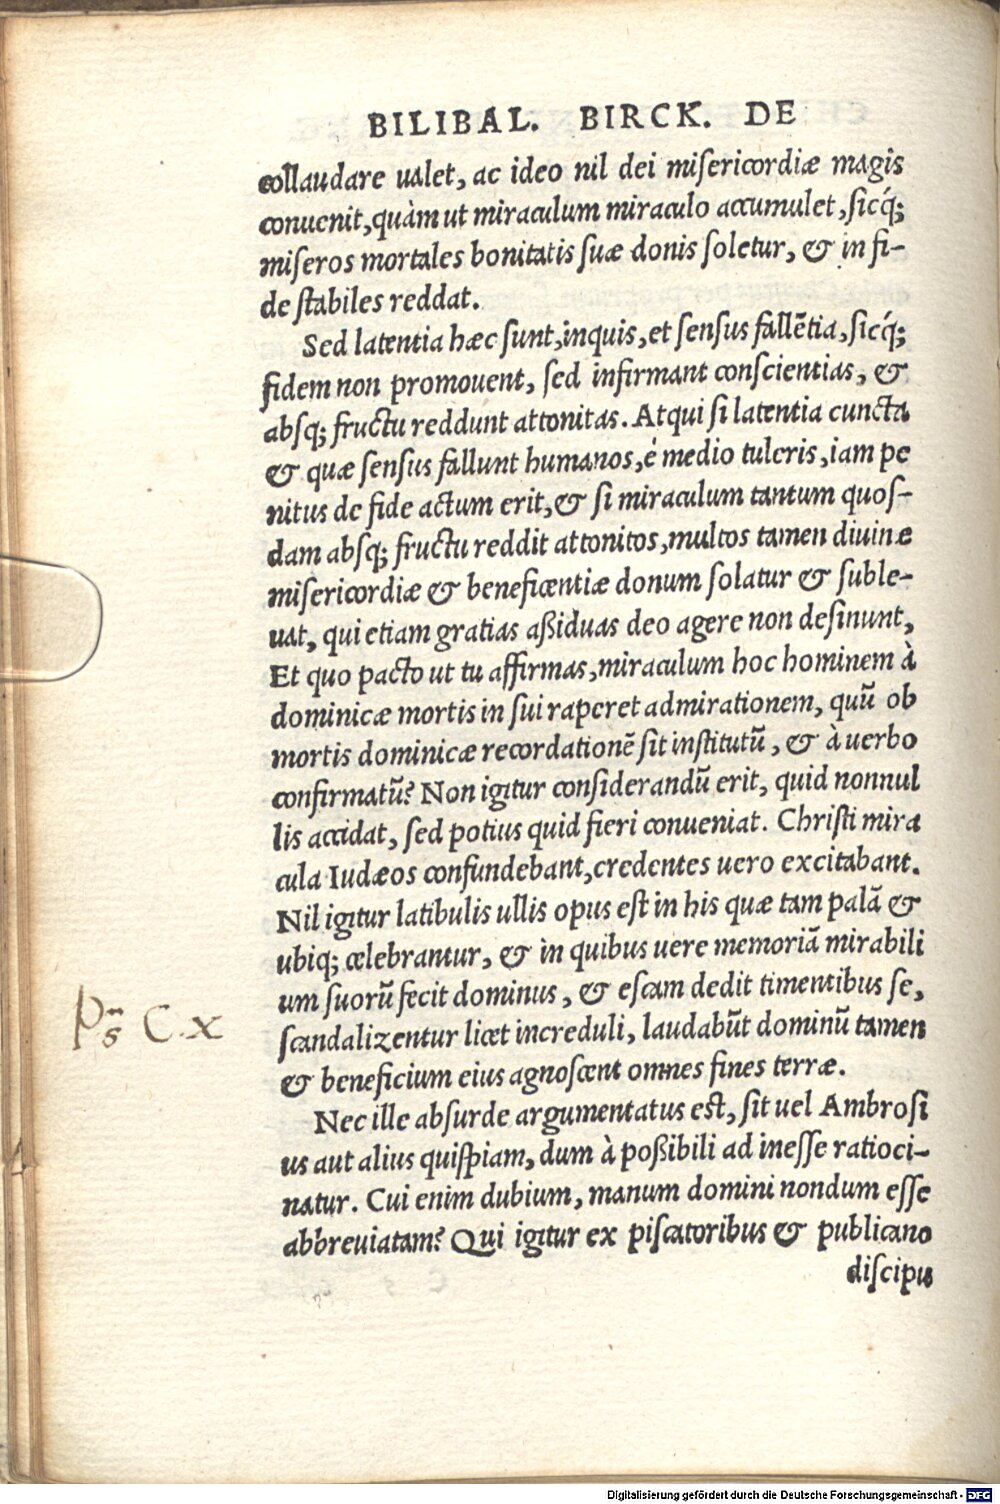 BILIBAL. BIRCK. DE
collaudare ualet, ac ideo nil dei misericordiæ magis
conuenit, quàm ut miraculum miraculo accumulet, sicq́;
miseros mortales bonitatis suæ donis soletur, & in fi-
de stabiles reddat.
Sed latentia hæc sunt, inquis, et sensus fallẽtia, sicq́;
fidem non promouent, sed infirmant conscientias, &
absq; fructu reddunt attonitas. Atqui si latentia cuncta
& quæ sensus fallunt humanos, è medio tuleris, iam pe
nitus de fide actum erit, & si miraculum tantum quos-
dam absq; fructu reddit attonitos, multos tamen diuinæ
misericordiæ & beneficentiæ donum solatur & suble-
uat, qui etiam gratias aßiduas deo agere non desinunt,
Et quo pacto ut tu affirmas, miraculum hoc hominem à
dominicæ mortis in sui raperet admirationem, quũ ob
mortis dominicæ recordationẽ sit institutũ, & à uerbo
confirmatũ? Non igitur considerandũ erit, quid nonnul
lis accidat, sed potius quid fieri conueniat. Christi mira
cula Iudæos confundebant, credentes uero excitabant.
Nil igitur latibulis ullis opus est in his quæ tam palã &
ubiq; celebrantur, & in quibus uere memoriã mirabili
um suorũ fecit dominus, & escam dedit timentibus se,
scandalizentur licet increduli, laudabũt dominũ tamen
Ps C.x
& beneficium eius agnoscent omnes fines terræ.
Nec ille absurde argumentatus est, sit uel Ambrosi
us aut alius quispiam, dum à poßibili ad inesse ratioci-
natur. Cui enim dubium, manum domini nondum esse
abbreuiatam? Qui igitur ex piscatoribus & publicano
discipu
Digitalisierung gefördert durch die Deutsche Forschungsgemeinschaft - DFG